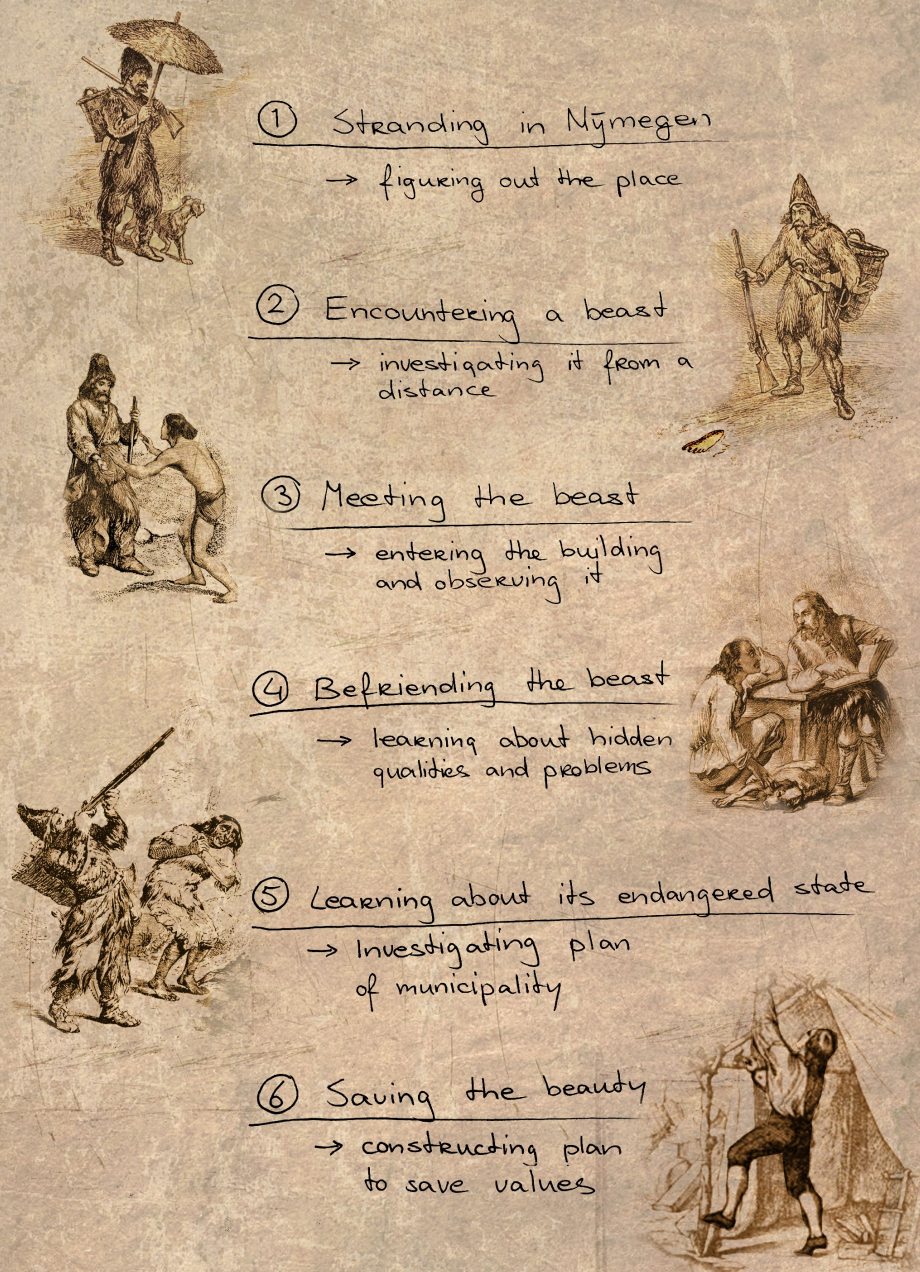 1 Stranding in Nÿmegen
→ figuring out the place
2 Encountering a beast
→ investigating it from a
distance
3 Meeting the beast
→ entering the building
and observing it
4 Befriending the beast
→ learning about hidden
qualities and problems
5 Learning about its endangered state
→ Investigating plan
of municipality
6 Saving the beauty
→ constructing plan
to save values